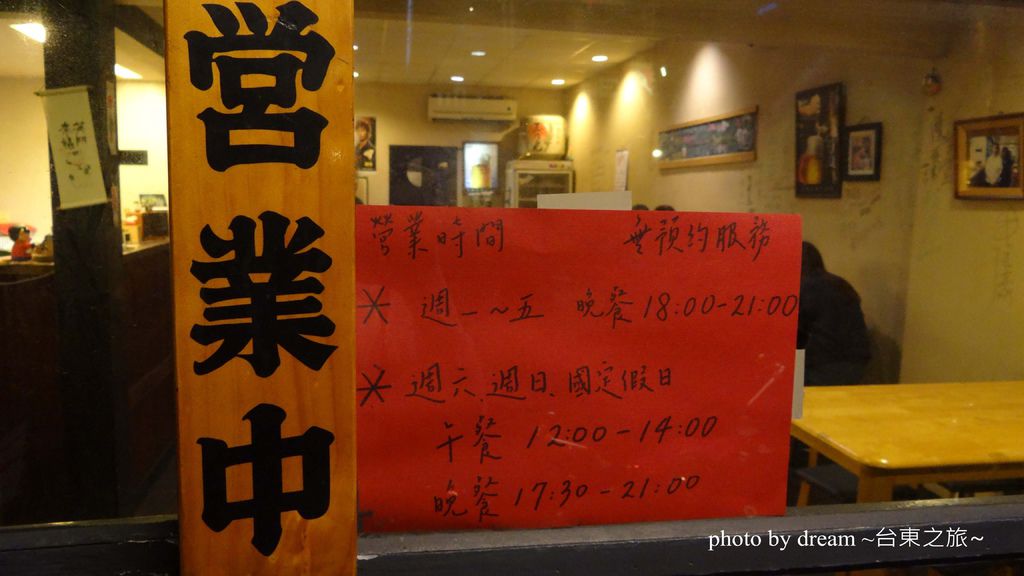 営業中
營業時間 無預約服務
* 週一~五 晚餐 18:00-21:00
* 週六、週日、國定假日
午餐 12:00-14:00
晚餐 17:30-21:00
photo by dream ~台東之旅~